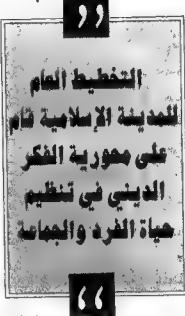 التخطيط العام
للمدينة الإسلامية قام
على محورية الفكر
الديني في تنظيم
حياة الفرد والجماعة